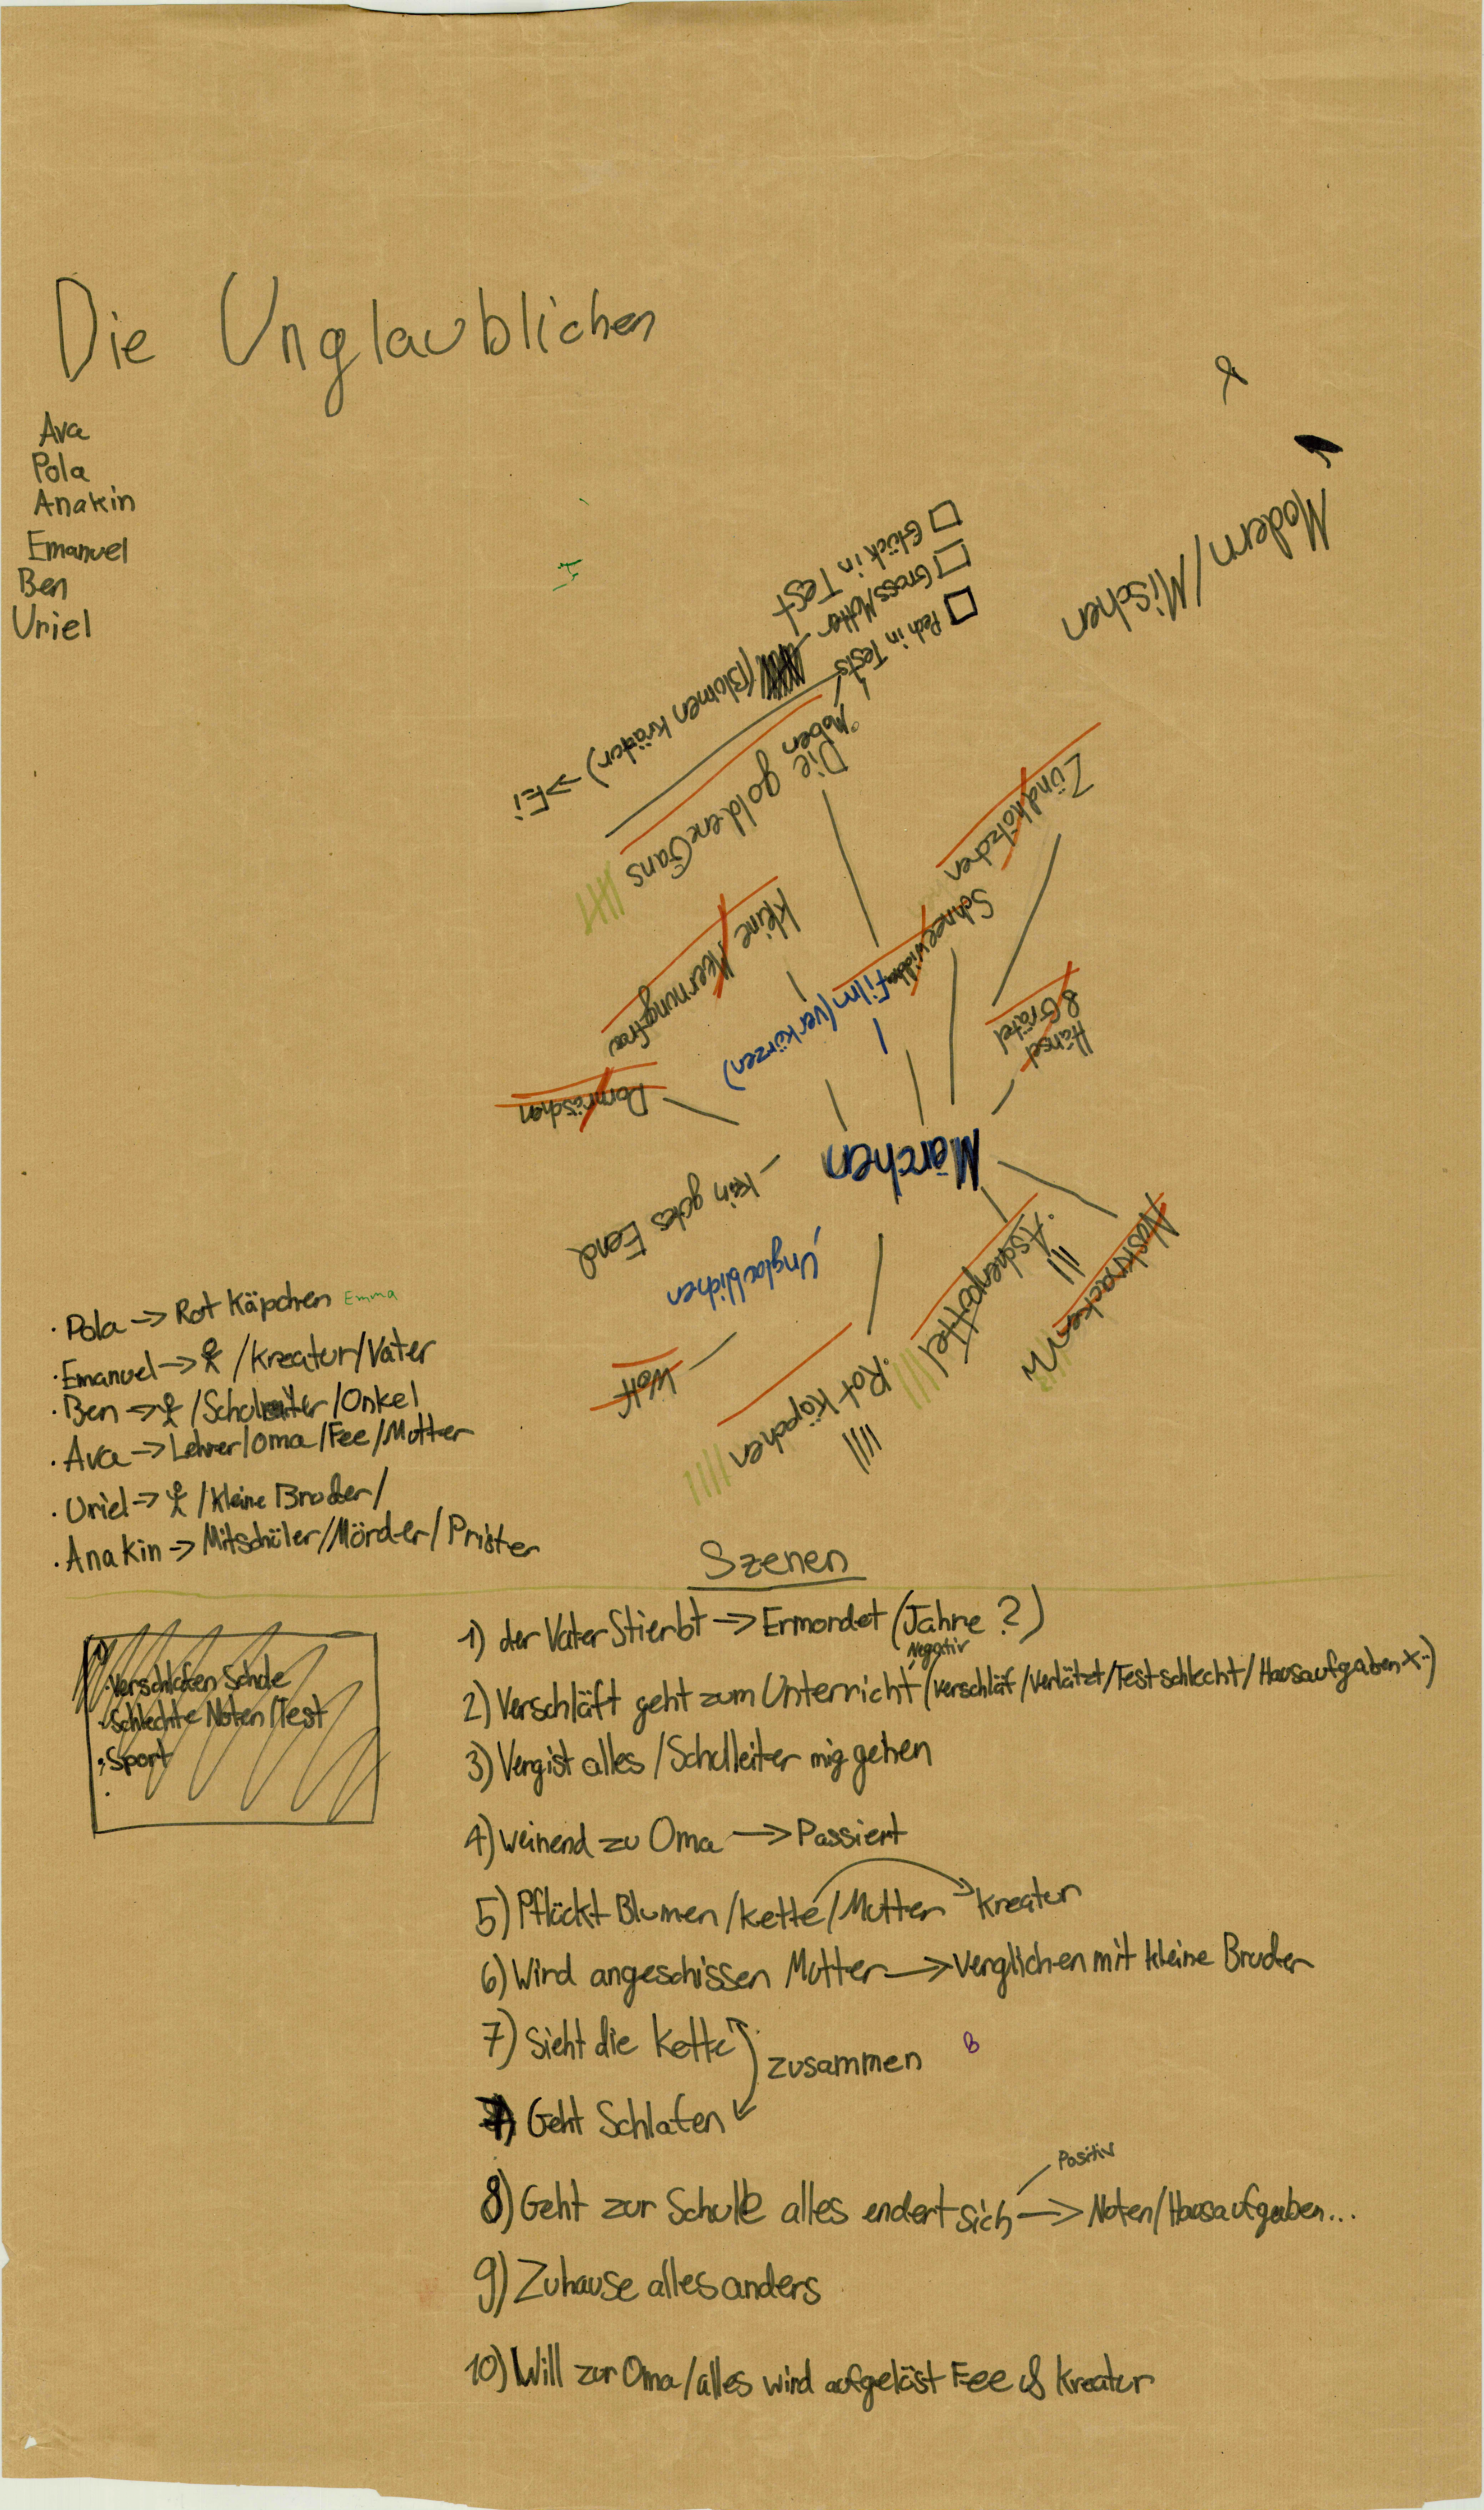 Die Unglaublichen
Ava
Pola
Anakin
Emanuel
Ben
Uriel
Modern/Mischen
Glück in Test
GrossMutter
Pech in Tests
(Blumen kräuter) -> Ei
Die goldene Gans
Zündhölzchen
Kleine Meerjungfrau
Film (verkürzen)
Hänsel
& Grätel
Dornröschen
Märchen
kein gutes Eend
Unglaublichen
Wolf
Rot Käpchen
Aschenputtel
Nussknacker
· Pola -> Rot Käpchen Emma
· Emanuel -> /Kreatur/Vater
· Ben -> /Schulleiter/Onkel
· Ava -> Lehrer/Oma/Fee/Mutter
· Uriel -> /Kleine Bruder/
· Anakin -> Mitschüler/Mörder/Prister
Szenen
1) der Vater Stierbt -> Ermordet (Jahre ?)
Negativ
2) Verschläft geht zum Unterricht (verschläf/verlätzt/Test schlecht/Hausaufgaben x..)
3) Vergist alles /Schulleiter mig gehen
4) weinend zu Oma -> Passiert
5) Pflückt Blumen /kette/Mutter Kreatur
6) Wird angeschissen Mutter -> verglichen mit kleine Bruder
7) Sieht die Kette
zusammen
B
Geht Schlafen
Positiv
8) Geht zur Schule alles endert sich -> Noten/Hausaufgaben...
9) Zuhause alles anders
10) Will zur Oma/alles wird aufgelöst Fee & Kreatur
· Verschlafen Schule
· Schlechte Noten/Test
· Sport